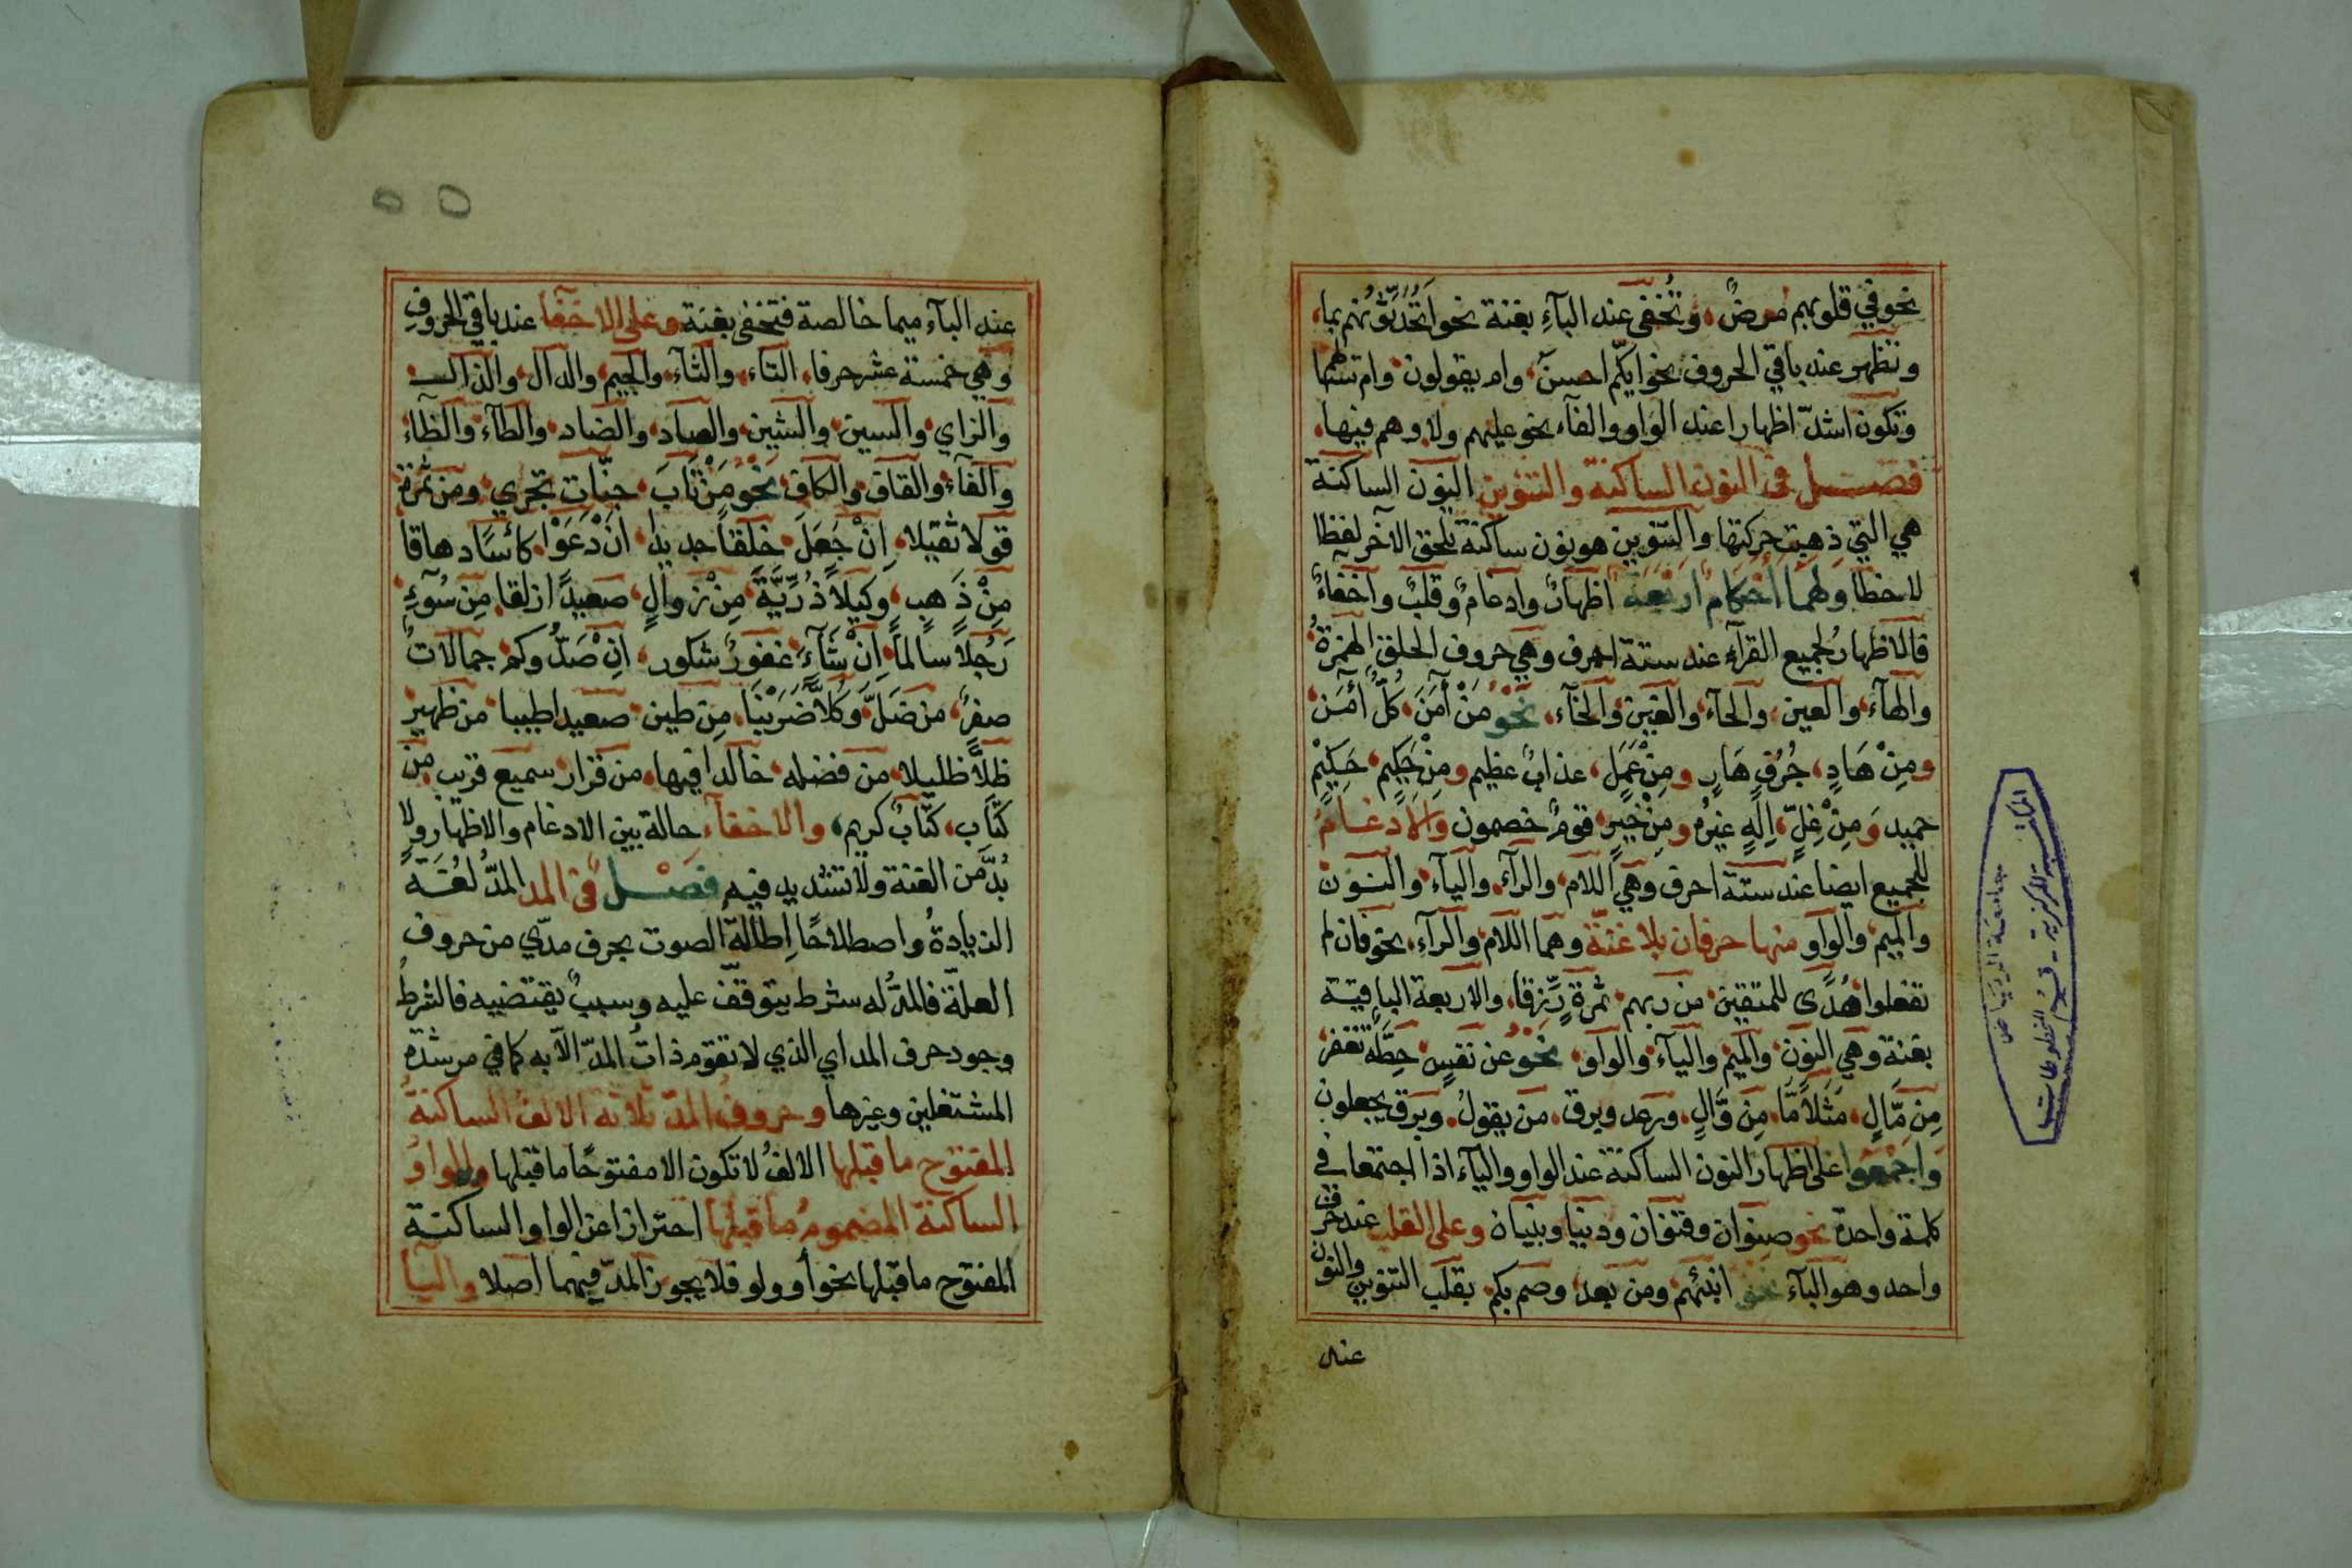 نحو في قلوبهم مرضٌ، وتُخفى عند البآءِ بغنة نحو اَتُحَدِّثُونهم بما،
وتظهر عند باقي الحروف نحو ايكّم احسن، وام يقولون، وام تنبئهما
وتكون اشدّ اظهارا عند الواو والفآء نحو عليهم ولا، وهم فيها،
فصل في النون الساكنة والتنوين النون الساكنة
هي التي ذهبت حركتها والتنوين هو نون ساكنة تلحق الآخر لفظا
لا خطا ولهما أحكام اربعة اظهارٌ وادغامٌ وقلبٌ واخفاءٌ
فالاظهارُ لجميع القرآء عند ستة احرف وهي حروف الحلق الهمزةُ
والهآء، والعين، والحآء، والغين، والخآء، نَحْوُ مَنْ آمَنَ، كُلٌّ أمَنَ،
ومِنْ هَادٍ، جُرُفٍ هَارٍ ومِنْ عَمَلٍ، عذابٌ عظيم ومِنْ حَكِيم، حَكِيْمٍ
حميد وَمِنْ غِلٍّ، اِلَهٍ غيرُه ومِنْ خَيرٍ، قومٌ خصمون والادغامُ
للجميع ايضا عند ستة احرف وهي اللام، والرآء، واليآء، والنون
والميم، والواو منها حرفان بلا غنّة وهما اللام، والرآء، نحو فان لم
تفعلوا هُدًى للمتقين، من ربهم، ثمرةٍ رِّزقا، والاربعة الباقية
بغنة وهي النون، والميم، واليآء، والواو، نَحْوُ عن نفسٍ، حِطَّةٌ نغفر
مِنْ مَّالٍ، مَثَلاً مَّا، مِن وَّالٍ، ورعد وبرق، من يقولُ، وبرق يجعلون
وَاجمعوا على اظهار النون الساكنة عند الواو واليآء اذا اجتمعا في
كلمة واحدة نحو صنوان وقنوان ودنيا وبنيان وعلى القلب عند حرف
واحد وهو البآء نحو انبئهم ومن بعد، وصم بكم، بقلب التنوين والنون
عند
المكتبة المركزية - قسم المخطوطات
جامعة الرياض
عند البآء ميما خالصة فتخفى بغنة، وعلى الاخفا عند باقي الحروفِ
وهي خمسة عشر حرفا، التآء، والثآء، والجيم، والدآل، والذال
والزاي، والسين، والشين، والصاد، والضاد، والطآء، والظآء،
والفآء، والقاف، والكاف، نَحْوُ مَنْ تَابَ، جنّات تجري، ومن ثمرة
قولا ثقيلا، اِنْ جَعَلَ، خلقاً جديدا، انْ دَعَوْا، كأسًا دهاقا
مِنْ ذَهبٍ، وكيلاً ذُرِّيَّةَ، مِنْ زوالٍ، صعيدًا زلقا، مِن سُوٓءٍ،
رَجُلاً سالماً، اِنْ شَآءَ، غفورٌ شكور، اِنْ صَدُّوكم، جمالاتٌ
صفرٌ، من ضَلَّ، وَكُلاًّ ضَرَبْنَا، مِن طين، صعيدا طيبا، من ظهيرٍ
ظلاًّ ظليلا، من فضله، خالدا فيها، من قرار، سميع قريب، من
كتَاب، كتابٌ كريم، والاخفآء حالة بين الادغام والاظهار ولا
بُدَّ من الغنة ولا تشديد فيه فصل في المد المدُّ لغةً
الزيادةُ واصطلاحًا اِطالةُ الصوت بحرف مدّي من حروف
العلّة فالمدُّ له شرط يتوقفّ عليه وسببٌ يقتضيه فالشرطُ
وجود حرف المد اي الذي لا تقوم ذاتُ المدّ الاّ به كما في مرشدة
المشتغلين وغيرها وحروفُ المدّ ثلاثة الالفُ الساكنةُ
المفتوح ما قبلها الالفُ لا تكون الا مفتوحًا ما قبلها والواوُ
الساكنة المضمومُ ما قبلها احترازا عن الواو الساكنة
المفتوح ما قبلها نحو أو ولو فلا يجوز المدّ فيهما اصلا واليآ